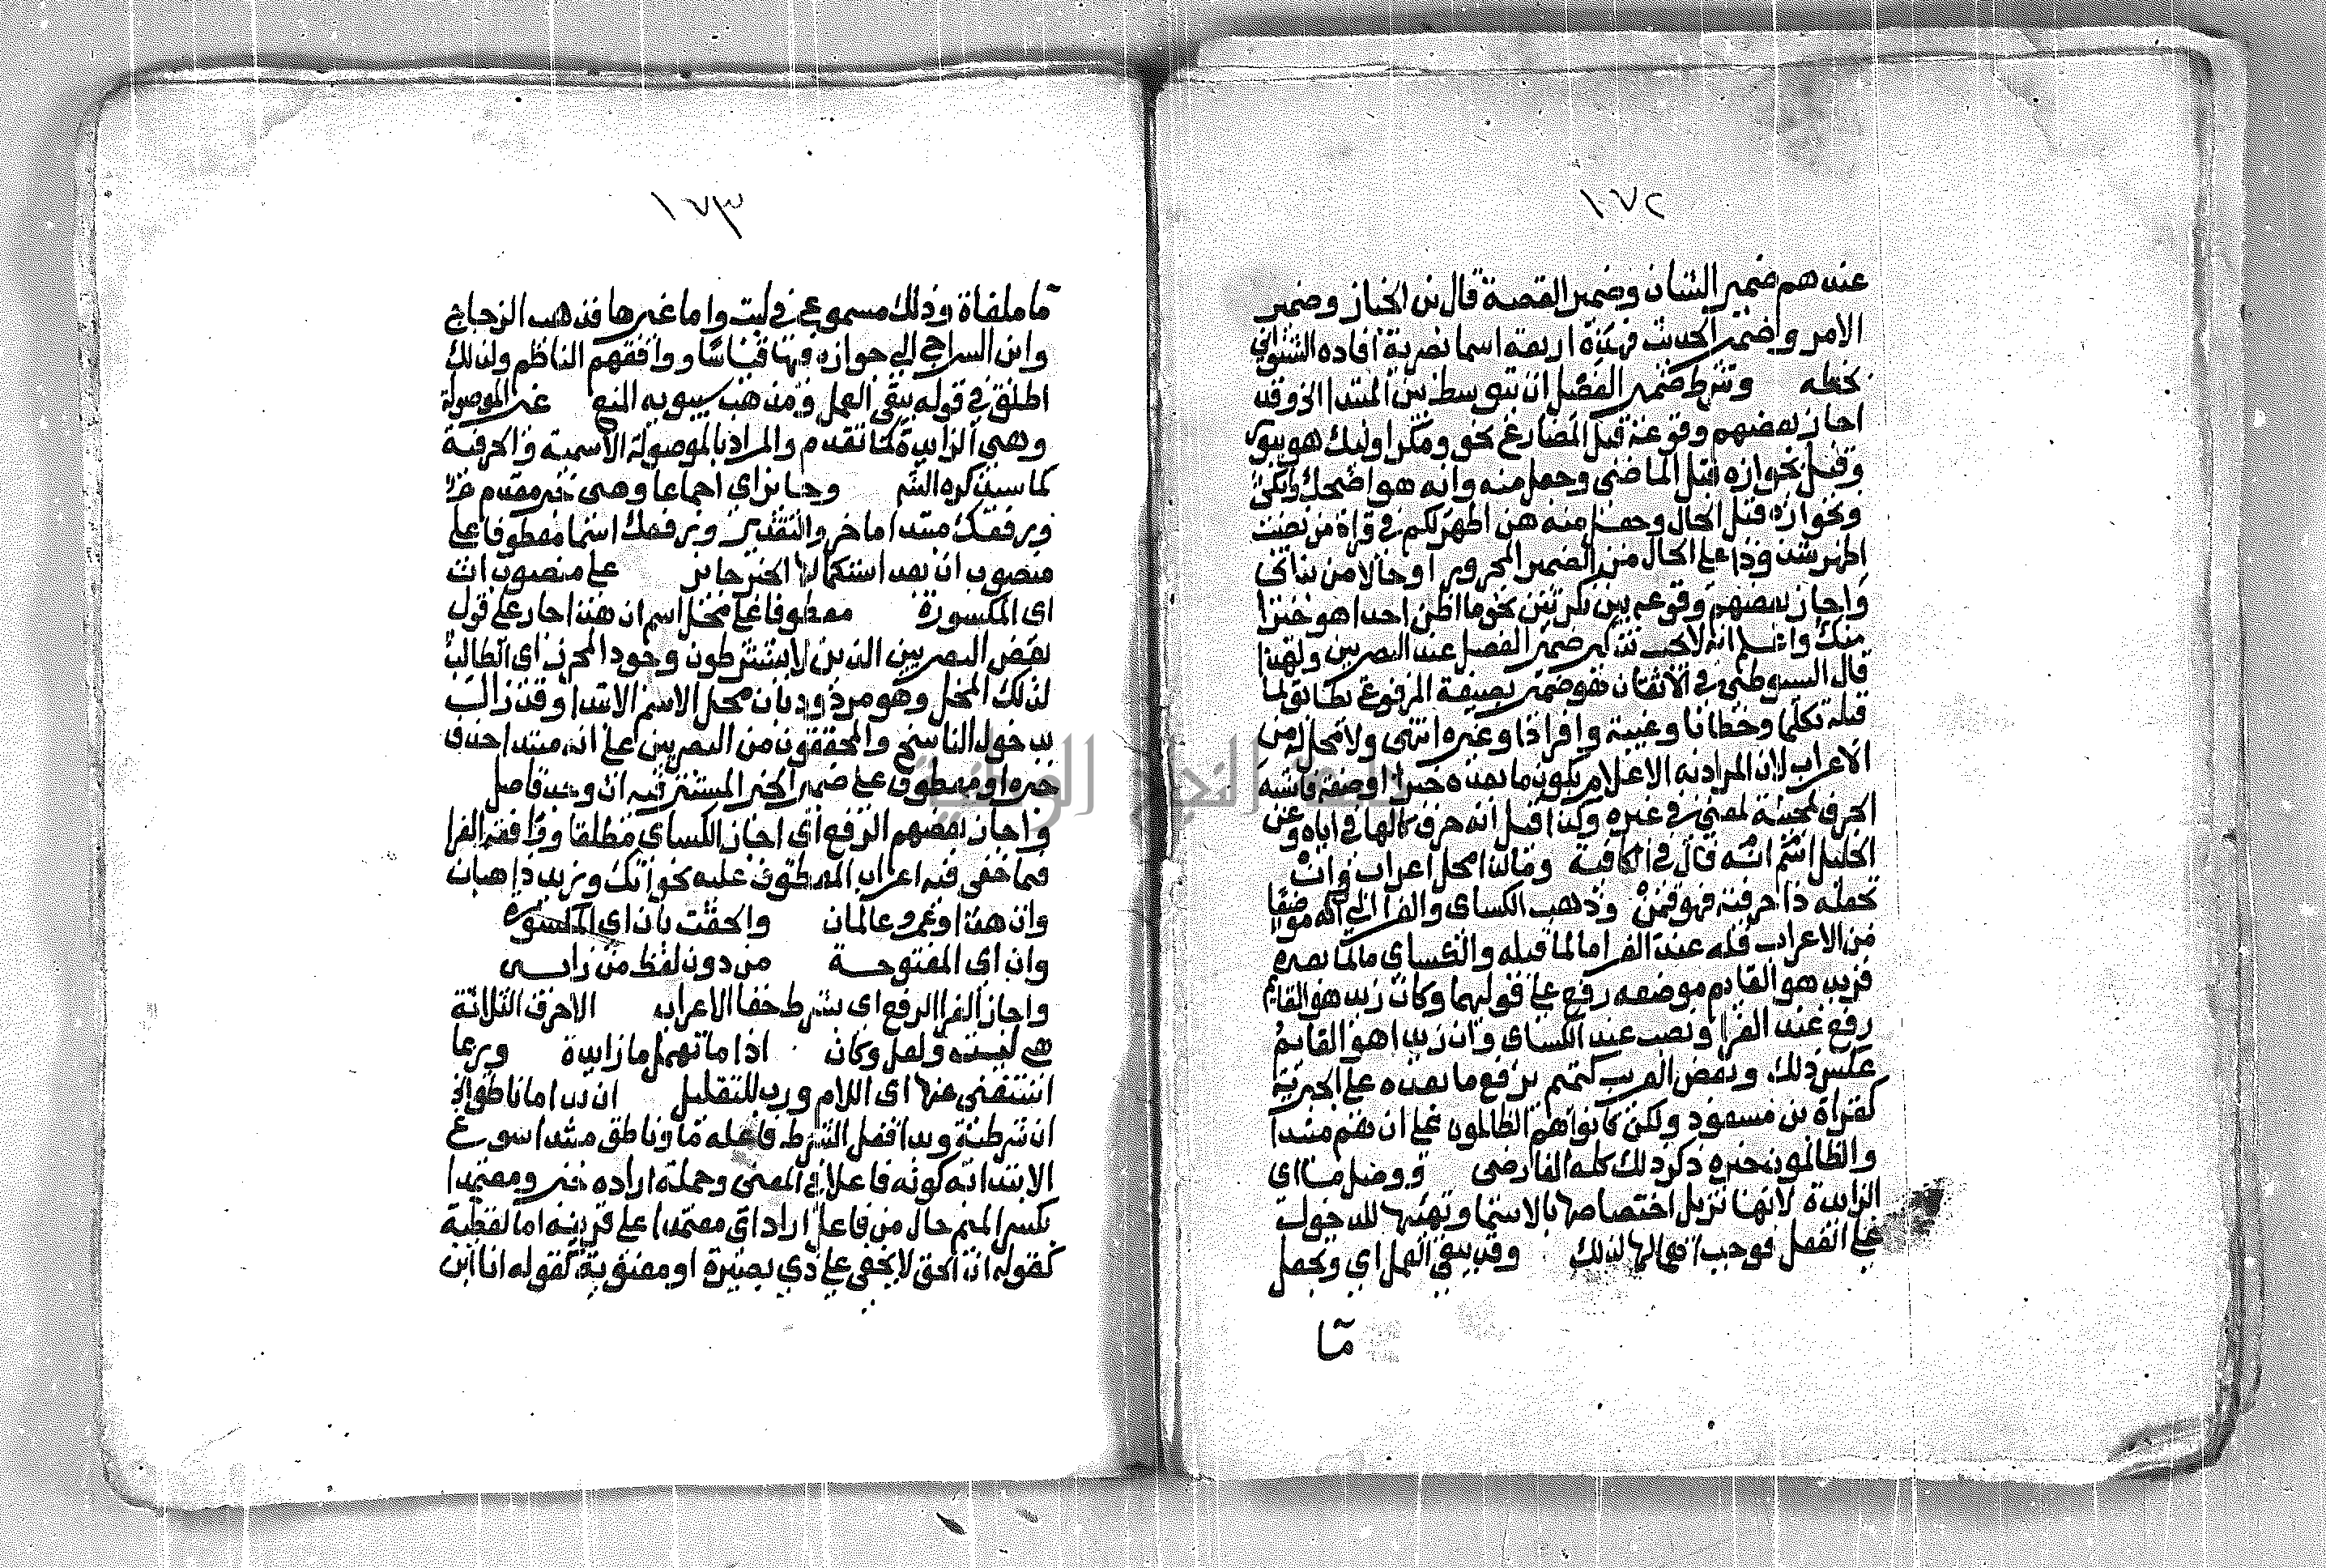 ١٧٢
عندهم ضمير الشان وضمير القصة قال بن الخباز وضمير
الامر وضمير الحديث فهذه اربعة اسما بصرية افاده الشنواني
بخطه وشرط ضمير الفصل ان يتوسط بين المبتدا الخ وقد
اجاز بعضهم وقوعه قبل المضارع نحو ومكر اوليك هو يبور
وقيل بجوازه قبل الماضى وجعل منه وانه هو اضحك وابكى
وبجوازه قبل الحال وجعل منه هن اطهر لكم في قراة من نصب
اطهر على الحال من الضمير المجرور او حالا من بناتى
واجاز بعضهم وقوعه بين نكرتين نحو ما اظن احدا هو خيرا
منك واعلم انه لا يجب تذكير ضمير الفصل عند البصريين ولهذا
قال السيوطي في الاتقان هو ضمير بصيغة المرفوع يطابق لما
قبله تكلما وخطابا وغيبة وافرادا وغيره انتهى ولا محل له من
الاعراب لان المراد به الاعلام بكون ما بعده خبرا او صفة فاشبه
الحرف لمجيئه لمعنى في غيره وكذا قيل انه حرف كالها في اياه وعن
الخليل اسم انه قال في الكافية وما لذا محل اعراب وان
تجعله ذا حرفية فهو قمن وذهب الكساى والفرا الى ان له موضعا
من الاعراب فله عند الفرا ما لما قبله والكساى ما لما بعده
فزيد هو القايم موضعه رفع على قوليهما وكان زيد هو القايم
رفع عند الفرا ونصب عند الكساى وان زيدا هو القايم
عكس ذلك وبعض العرب كتميم يرفع ما بعده على الخبرية
كقراة بن مسعود ولكن كانوا هم الظالمون على ان هم مبتدا
والظالمون خبره ذكر ذلك كله الفارضى ووصل ما اى
الزايدة لانها تزيل اختصاصها بالاسما وتهيئها للدخول
على الفعل فوجب اهمالها لذلك وقد يبقى العمل اى وتجعل
ما
١٧٣
ما ملغاة وذلك مسموع في ليت واما غيرها فذهب الزجاج
وابن السراج الى جوازه فيها قياسا ووافقهم الناظم ولذلك
اطلق في قوله يبقى العمل ومذهب سيبويه المنع غير الموصولة
وهى الزايدة كما تقدم والمراد بالموصولة الاسمية والحرفية
كما سيذكره الشم وجايز اى اجماعا وهى خبر مقدم
ورفعك مبتدا ماخر والتقدير ورفعك اسما معطوفا على
منصوب ان بعد استكمالها الخبر جايز على منصوب ان
اى المكسورة معطوفا على محل اسم ان هذا جار على قول
بعض البصريين الذين لا يشترطون وجود المحرز اى الطالب
لذلك المحل وهو مردود بان محل الاسم الابتدا وقد زال
بدخول الناسخ والمحققون من البصريين على انه مبتدا حذف
خبره او معطوف على ضمير الخبر المستتر فيه ان وجد فاصل
واجاز بعضهم الرفع اى اجاز الكساى مطلقا ووافقه الفرا
فيما خفى فيه اعراب المعطوف عليه نحو انك وزيد ذاهبان
وان هذا وعمرو عالمان والحقت بان اى المكسورة
وان اى المفتوحة من دون لفظ من راسى
واجاز الفرا الرفع اى بشرط خفا الاعراب الاحرف الثلاثة
هى ليت ولعل وكان اذا ما تهمل ما زايدة وربما
استغنى عنها اى اللام ورب للتقليل ان بدا ما ناطق الخ
ان شرطية وبدا فعل الشرط فاعله ما وناطق مبتدا سوغ
الابتدا به كونه فاعلا في المعنى وجملة اراده خبر ومعتمدا
بكسر الميم حال من فاعل اراد اى معتمدا على قرينة اما لفظية
كقوله ان الحق لا يخفى على ذي بصيرة او معنوية كقوله انا ابن